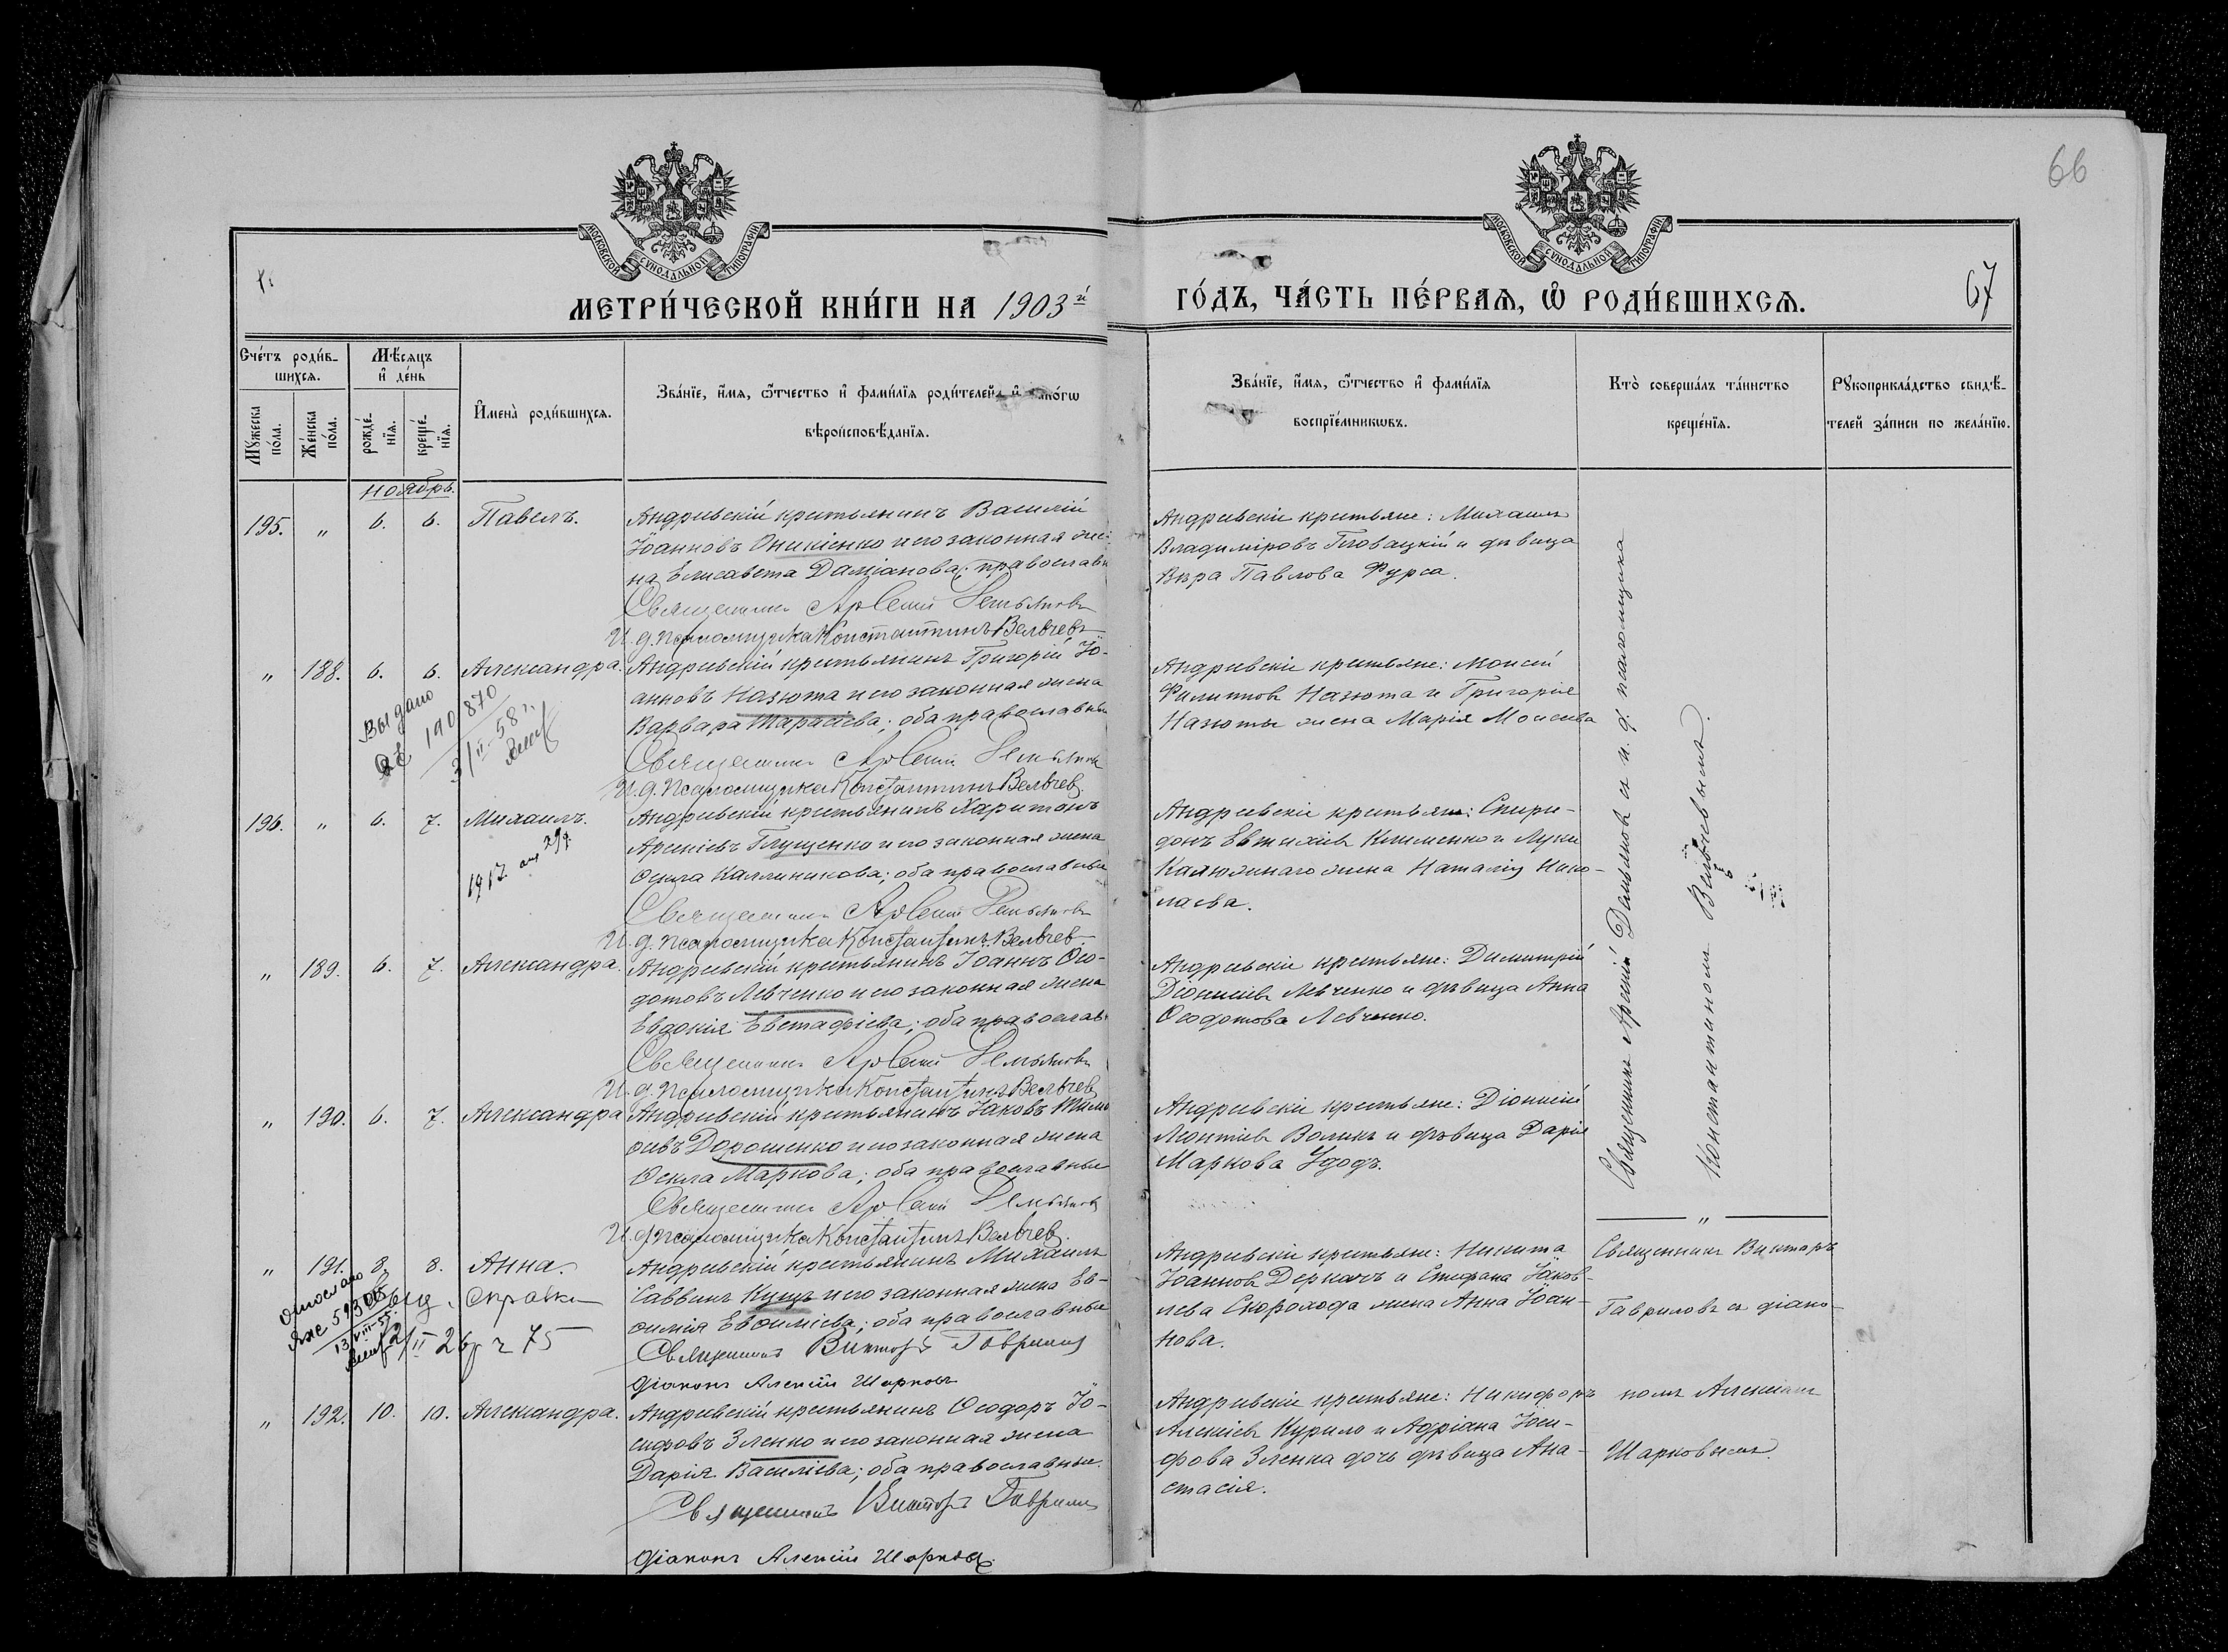 66
МОСКОВСКОЙ СѴНОДАЛЬНОЙ ТИПОГРАФІИ
МОСКОВСКОЙ СѴНОДАЛЬНОЙ ТИПОГРАФІИ
МЕТРИ́ЧЕСКОЙ КНИ́ГИ НА 1903й
ГО́ДЪ, ЧА́СТЬ ПЕ́РВАѦ, Ѡ РОДИ́ВШИХСѦ.
67
Сче́тъ роди́в-
шихсѧ.
Мѣ́сѧцъ
и҆ де́нь
Мꙋ́жеска
по́ла.
Же́нска
по́ла.
рожде́-
нїѧ.
креще́-
нїѧ.
И҆мена̀ роди́вшихсѧ.
Зва́нїе, и҆́мѧ, ѻ҆́тчество и҆ фами́лїѧ роди́телей, и҆ како́гѡ
вѣроисповѣ́данїѧ.
Зва́нїе, и҆́мѧ, ѻ҆́тчество и҆ фами́лїѧ
воспрїе́мникѡвъ.
Кто̀ соверша́лъ та́инство
креще́нїѧ.
Рꙋкоприкла́дство свидѣ́-
телей за́писи по жела́нїю.
ноябрь.
195. " 6. 6. Павелъ.
Андреевскій крестьянинъ Василій
Іоанновъ Оникіенко и его законная же-
на Елисавета Даміанова; православн
Священникъ Арсеній Демьяновъ
И. д. псаломщика Константинъ Вельчев
Андреевскіе крестьяне: Михаилъ
Владиміровъ Гловацкій и дѣвица
Вѣра Павлова Фурса.
" 188. 6. 6. Александра.
Андреевскій крестьянинъ Григорій Іо-
анновъ Назюта и его законная жена
Варвара Тарасіева; оба православные
Священникъ Арсеній Демьяновъ
И. д. псаломщика Константинъ Вельчев.
Выдано
190870
3/II-58 г.
Андреевскіе крестьяне: Моисей
Филиппов Назюта и Григорія
Назюты жена Марія Моисеева
196. " 6. 7. Михаилъ.
1917
Андреевскій крестьянинъ Харитонъ
Арсеніевъ Глущенко и его законная жена
Ѳекла Каллиникова; оба православные
Священникъ Арсеній Демьяновъ
И. д. псаломщика Константинъ Вельчев.
Андреевскіе крестьяне: Спири-
донъ Евтихіевъ Клименко и Луки
Калюжнаго жена Наталія Нико-
лаева.
" 189. 6. 7. Александра.
Андреевскій крестьянинъ Іоаннъ Ѳео-
дотовъ Левченко и его законная жена
Евдокія Евстафіева; оба православ
Священникъ Арсеній Демьяновъ
И. д. псаломщика Константинъ Вельчев
Андреевскіе крестьяне: Димитрій
Діонисіевъ Левченко и дѣвица Анна
Ѳеодотова Левченко.
" 190. 6. 7. Александра
Андреевскій крестьянинъ Іаковъ
Дорошенко и его законная жена
Ѳекла Маркова; оба православные
Священникъ Арсеній Демьяновъ
И. д. псаломщика Константинъ Вельчев.
Андреевскіе крестьяне: Діонисій
Леонтіевъ Воликъ и дѣвица Дарія
Маркова Удодъ.
Священникъ Арсеній Демьяновъ съ и. д. псаломщика
Константиномъ Вельчевымъ.
"
" 191. 8. 8. Анна.
отослано
13/VIII-55
выд. справка
2/II 26 г 75
Андреевскій крестьянинъ Михаилъ
Саввинъ Куцъ и его законная жена Ев-
ѳимія Евѳиміева; оба православные
Священникъ Викторъ Гавриловъ
діаконъ Алексій Шарковъ
Андреевскіе крестьяне: Никита
Іоанновъ Деркачъ и Стефана Іаков-
лева Скорохода жена Анна Іоан-
нова.
Священникъ Викторъ
Гавриловъ съ діако-
номъ Алексіемъ
Шарковымъ.
" 192. 10. 10. Александра.
Андреевскій крестьянинъ Ѳеодоръ Іо-
сифовъ Зленко и его законная жена
Дарія Василіева; оба православные.
Священникъ Викторъ Гавриловъ
діаконъ Алексій Шарковъ.
Андреевскіе крестьяне: Никифоръ
Алексіевъ Курило и Адріана Іоси-
фова Зленка дочь дѣвица Ана-
стасія.